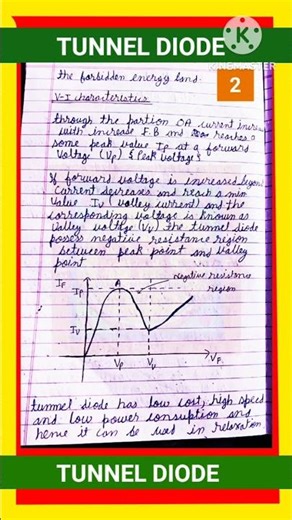 TUNNEL DIODE
K
KINEMASTER
2
the forbidden energy band.
V-I characteristics
through the partion OA current increa
with increase F.B and reaches a
some peak value Ip at a forward
voltage (Vp) & Peak voltage
If forward voltage is increased beyond
current decreases and reach a min
value Iv (valley current) and the
corresponding voltage is known as
valley voltage (Vv) the tunnel diode
posses negative resistance region
between peak point and valley
point.
IF
Ip
A
negative resistance
region
Iv
Vp
Vv
VF
tunnel diode has low cost, high speed
and low power consuption and
hence it can be used in relaxation
TUNNEL DIODE